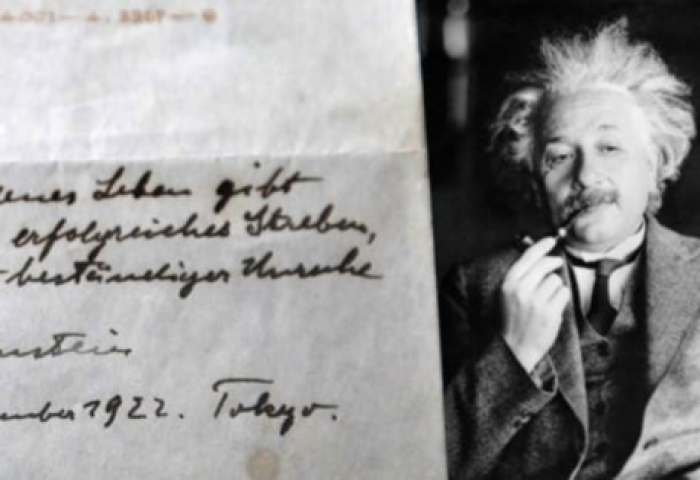 enes Leben gibt
erfolgreiches Streben,
beständiger Unruhe
nstein
mber 1922. Tokyo.